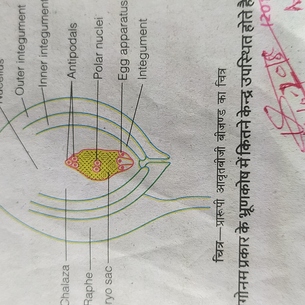 Outer integument
Inner integument
Antipodals
Polar nuclei
Egg apparatus
Integument
Chalaza
Raphe
sac
चित्र—प्रारूपी आवृतबीजी बीजाण्ड का चित्र
प्रकार के भ्रूणकोष में कितने केन्द्र उपस्थित होते हैं